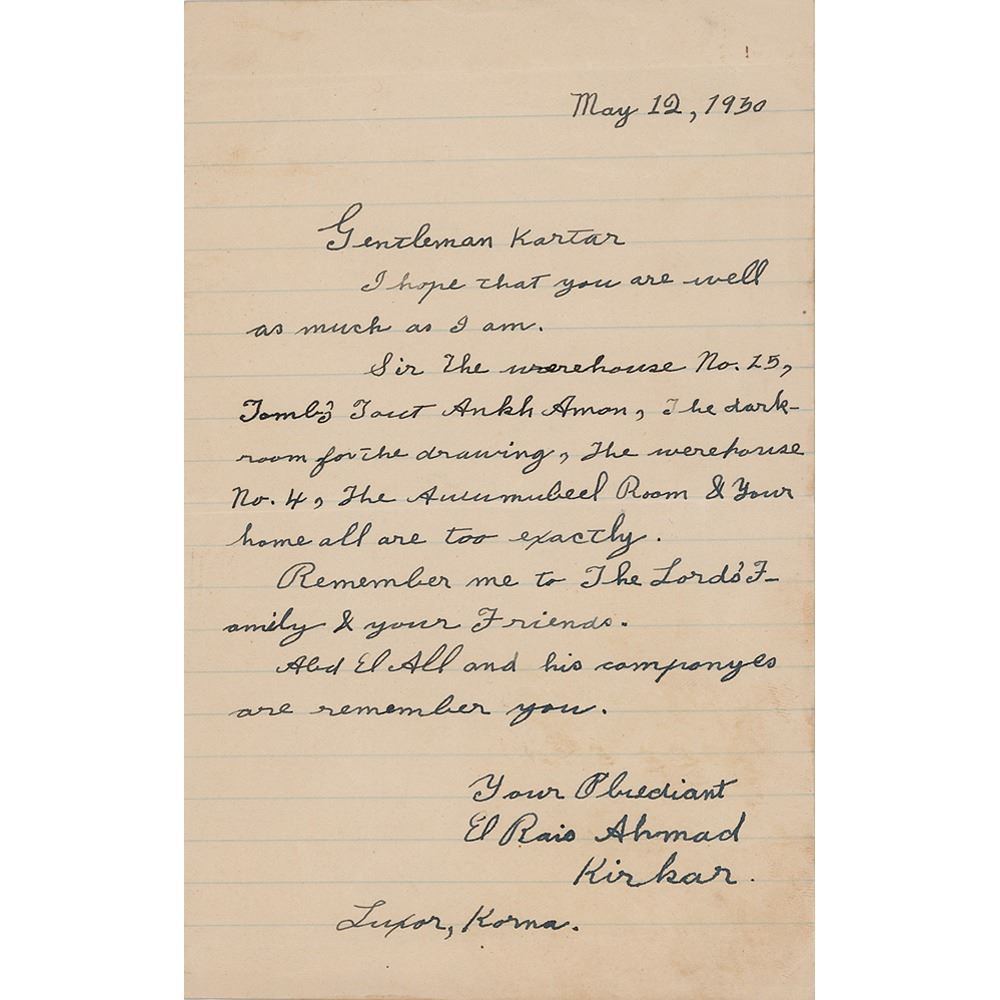 May 12, 1930
Gentleman Kartar
I hope that you are well
as much as I am.
Sir The werehouse No. 15,
Tomb'z Tout Ankh Amon, The dark-
room for the drawing, The werehouse
No. 4, The Auuumubeel Room & Your
home all are too exactly.
Remember me to The Lord's F-
amily & your Friends.
Abd El All and his companyes
are remember you.
Your Obuediant
El Rais Ahmad
Kirkar.
Luxor, Korna.